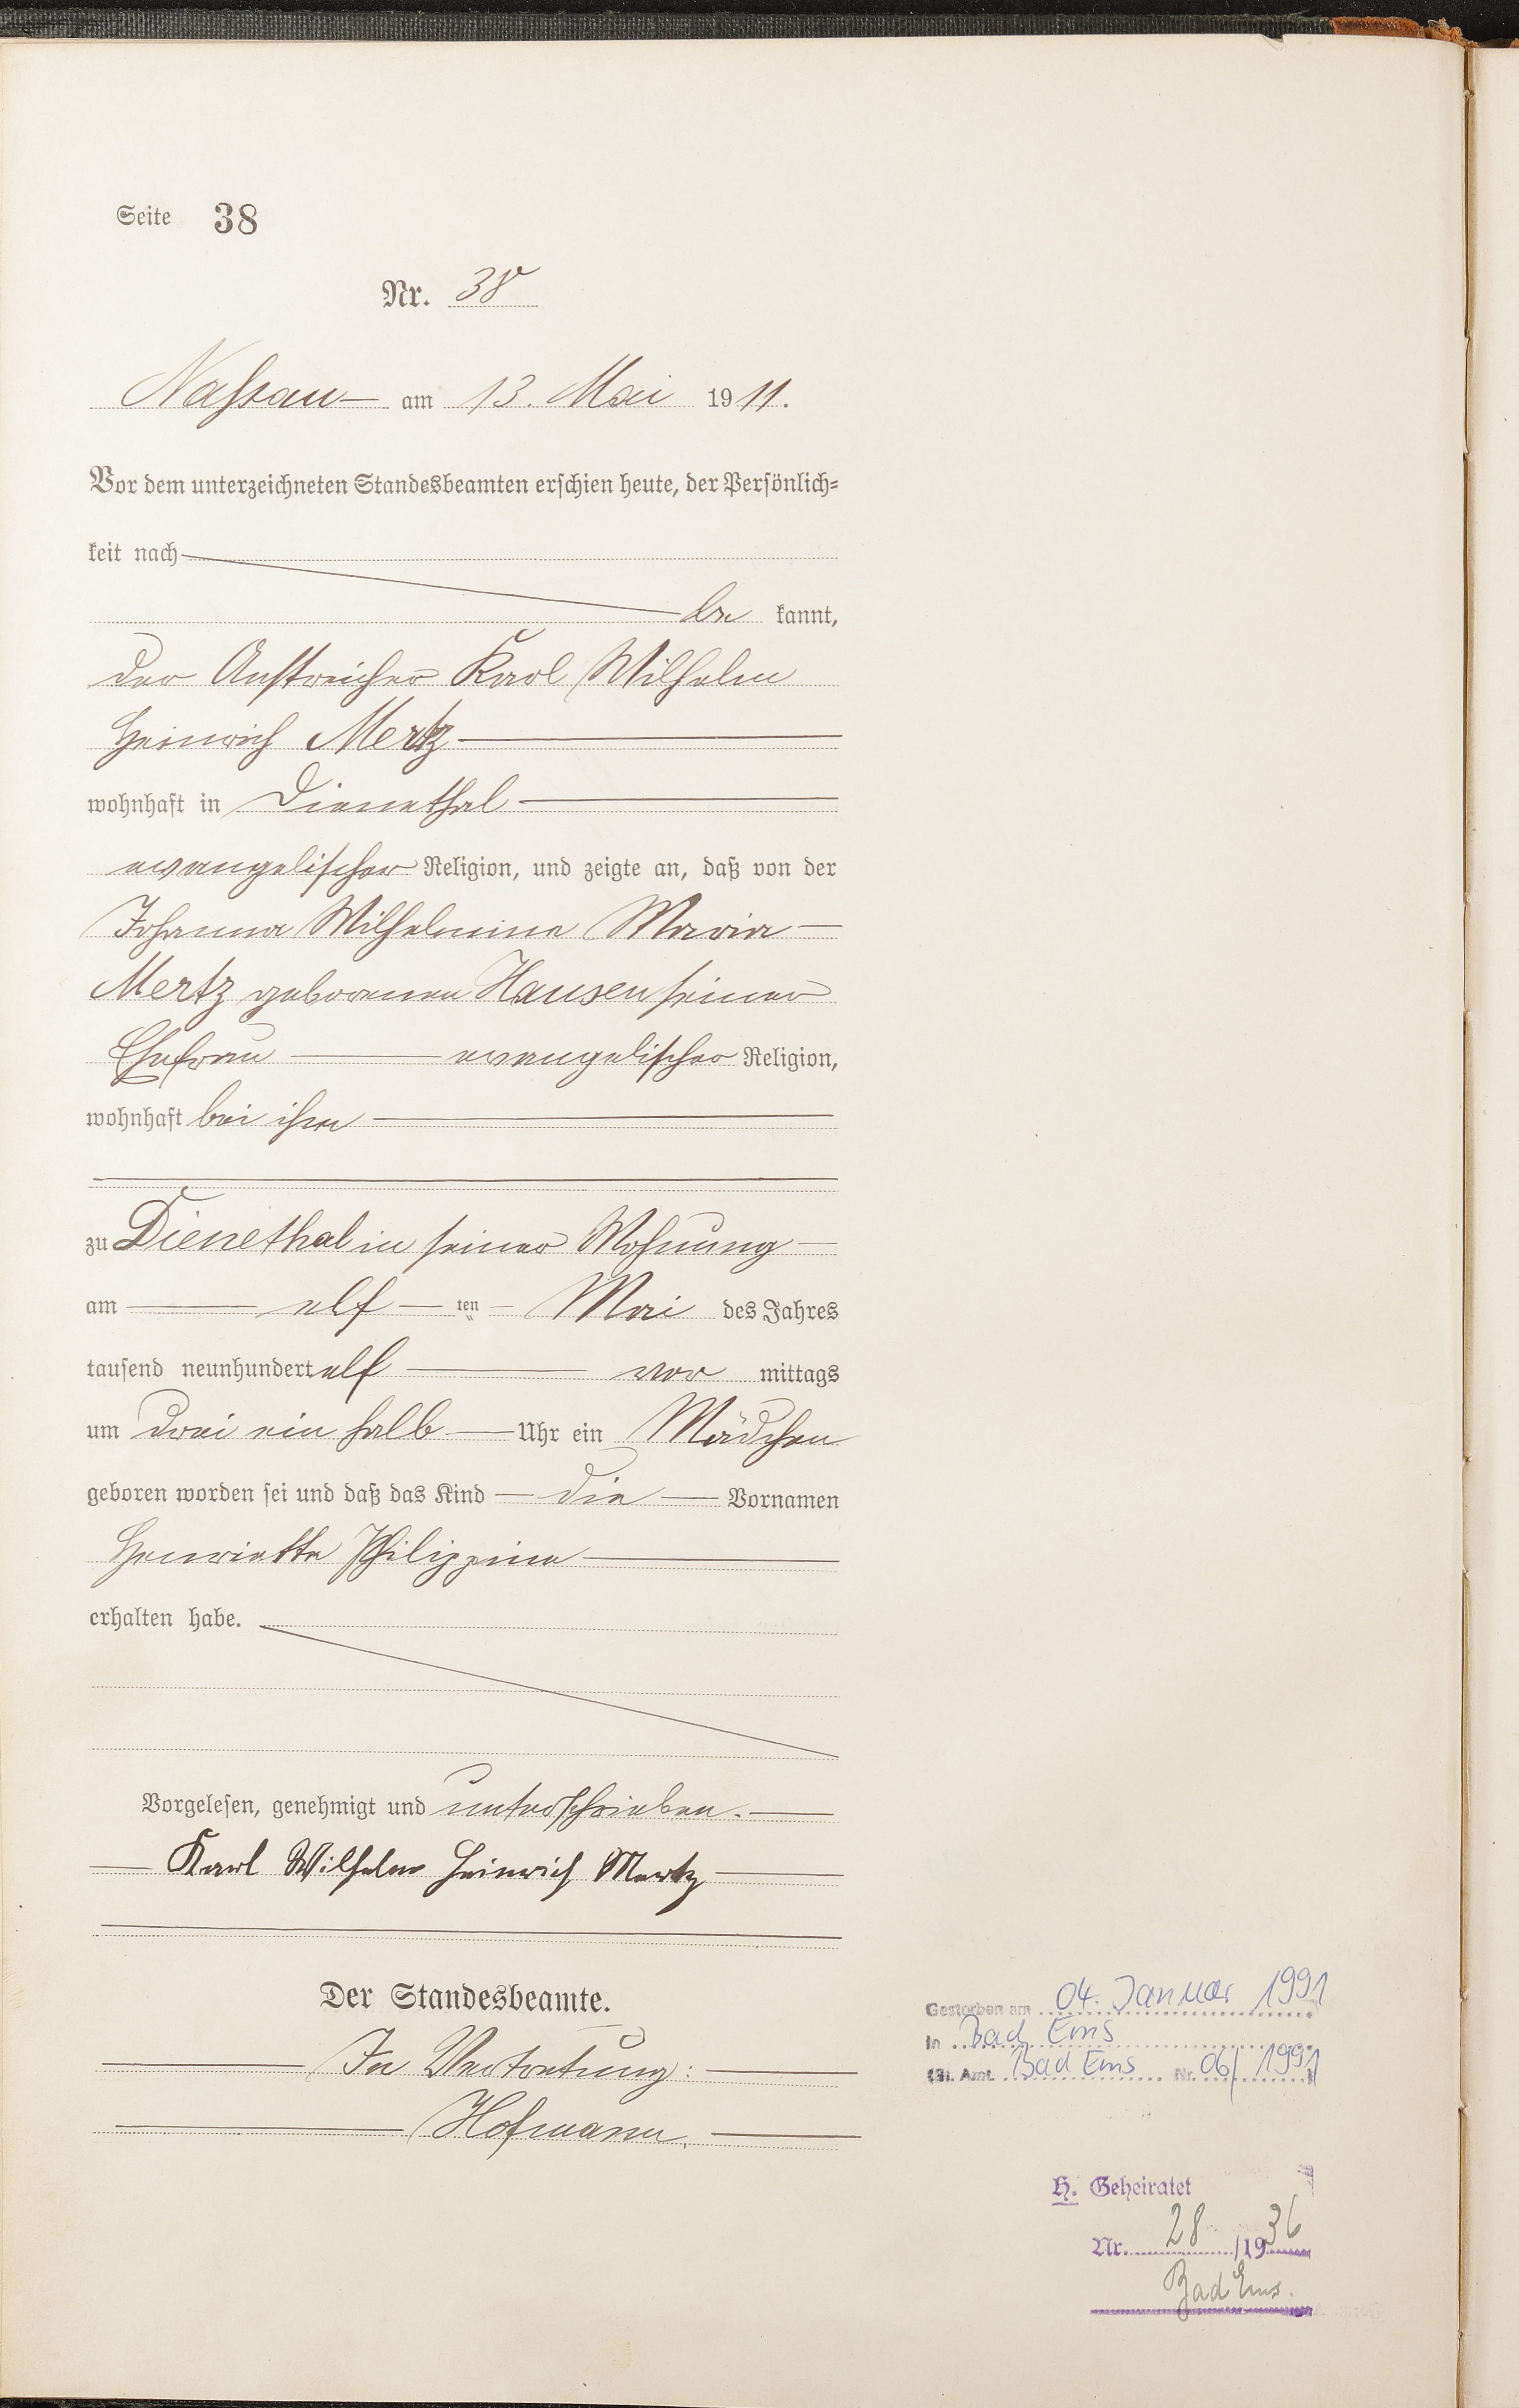 Seite 38
Nr. 38
Nassau am 13. Mai 1911.
Vor dem unterzeichneten Standesbeamten erschien heute, der Persönlich=
keit nach
be kannt,
der Anstreicher Karl Wilhelm
Heinrich Mertz
wohnhaft in Dienethal
evangelischer Religion, und zeigte an, daß von der
Johanna Wilhelmine Maria
Mertz geborenen Hausen seiner
Ehefrau evangelischer Religion,
wohnhaft bei ihm
zu Dienethal in seiner Wohnung
am elf ten Mai des Jahres
tausend neunhundert elf vor mittags
um drei ein halb Uhr ein Mädchen
geboren worden sei und daß das Kind die Vornamen
Henriette Philippine
erhalten habe.
Vorgelesen, genehmigt und unterschrieben.
Karl Wilhelm Heinrich Mertz
Der Standesbeamte.
In Vertretung:
Hofmann.
Gestorben am 04. Januar 1991
in Bad Ems
(St. Amt Bad Ems Nr. 06/1991)
H. Geheiratet
Nr. 28/1936
Bad Ems.